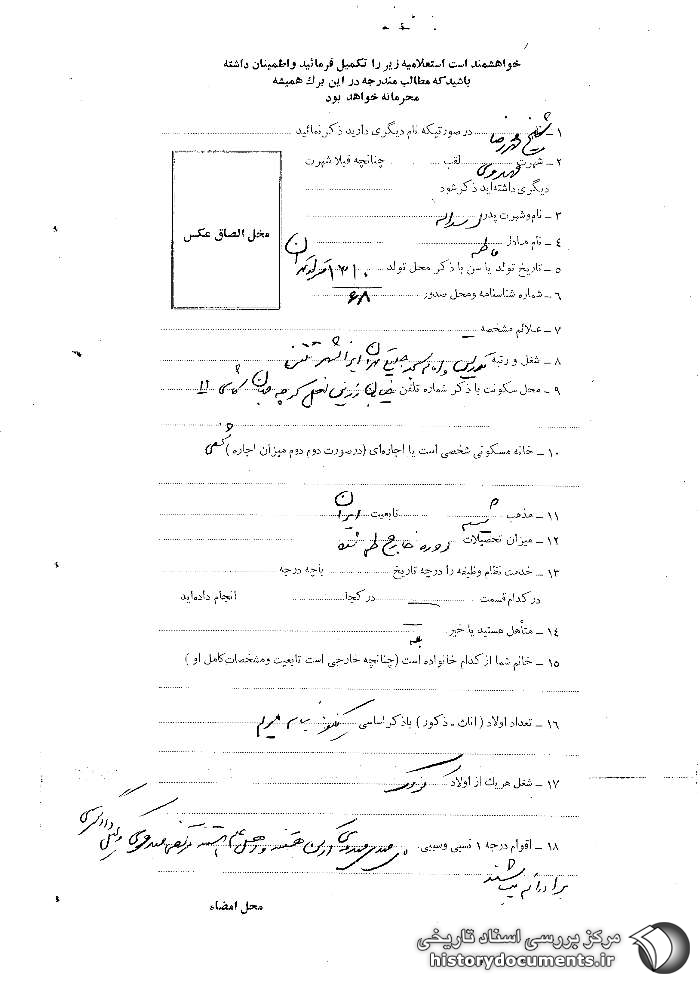 خواهشمند است استعلامیه زیر را تکمیل فرمائید و اطمینان داشته
باشید که مطالب مندرجه در این برگ همیشه
محرمانه خواهد بود
۱ ـ شیخ محمدرضا در صورتیکه نام دیگری دارید ذکر نمائید
۲ ـ شهرت مهدوی لقب چنانچه قبلا شهرت
دیگری داشته‌اید ذکر شود
محل الصاق عکس
۳ ـ نام و شهرت پدر اسداله
۴ ـ نام مادر فاطمه
۵ ـ تاریخ تولد یا سن با ذکر محل تولد ۱۳۱۰ تهران
۶ ـ شماره شناسنامه ومحل صدور ۶۸
۷ ـ علائم مشخصه
۸ ـ شغل و رتبه و امام مسجد تهران ایرانشهر تلفن
۹ ـ محل سکونت با ذکر شماره تلفن خیابان کوچه ۱۱
۱۰ ـ خانه مسکونی شخصی است یا اجاره‌ای (در صورت دوم دوم میزان اجاره) شخصی
۱۱ ـ مذهب شیعه تابعیت ایران
۱۲ ـ میزان تحصیلات دوره خارج طی شده
۱۳ ـ خدمت نظام وظیفه را درچه تاریخ باچه درجه
در کدام قسمت در کجا انجام داده‌اید
۱۴ ـ متأهل هستید یا خیر بله
۱۵ ـ خانم شما از کدام خانواده است (چنانچه خارجی است تابعیت ومشخصات کامل او)
۱۶ ـ تعداد اولاد (اناث ـ ذکور) باذکر اسامی یکنفر بنام مریم
۱۷ ـ شغل هریک از اولاد کودک
۱۸ ـ اقوام درجه ۱ نسبی وسببی هستند مهدوی وکیل دادگستری
برادرانم میباشند
محل امضاء
مرکز بررسی اسناد تاریخی
historydocuments.ir